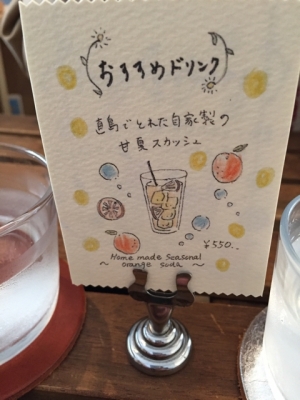 おすすめドリンク
直島でとれた自家製の
甘夏スカッシュ
¥550-
Home made Seasonal
~ orange soda ~